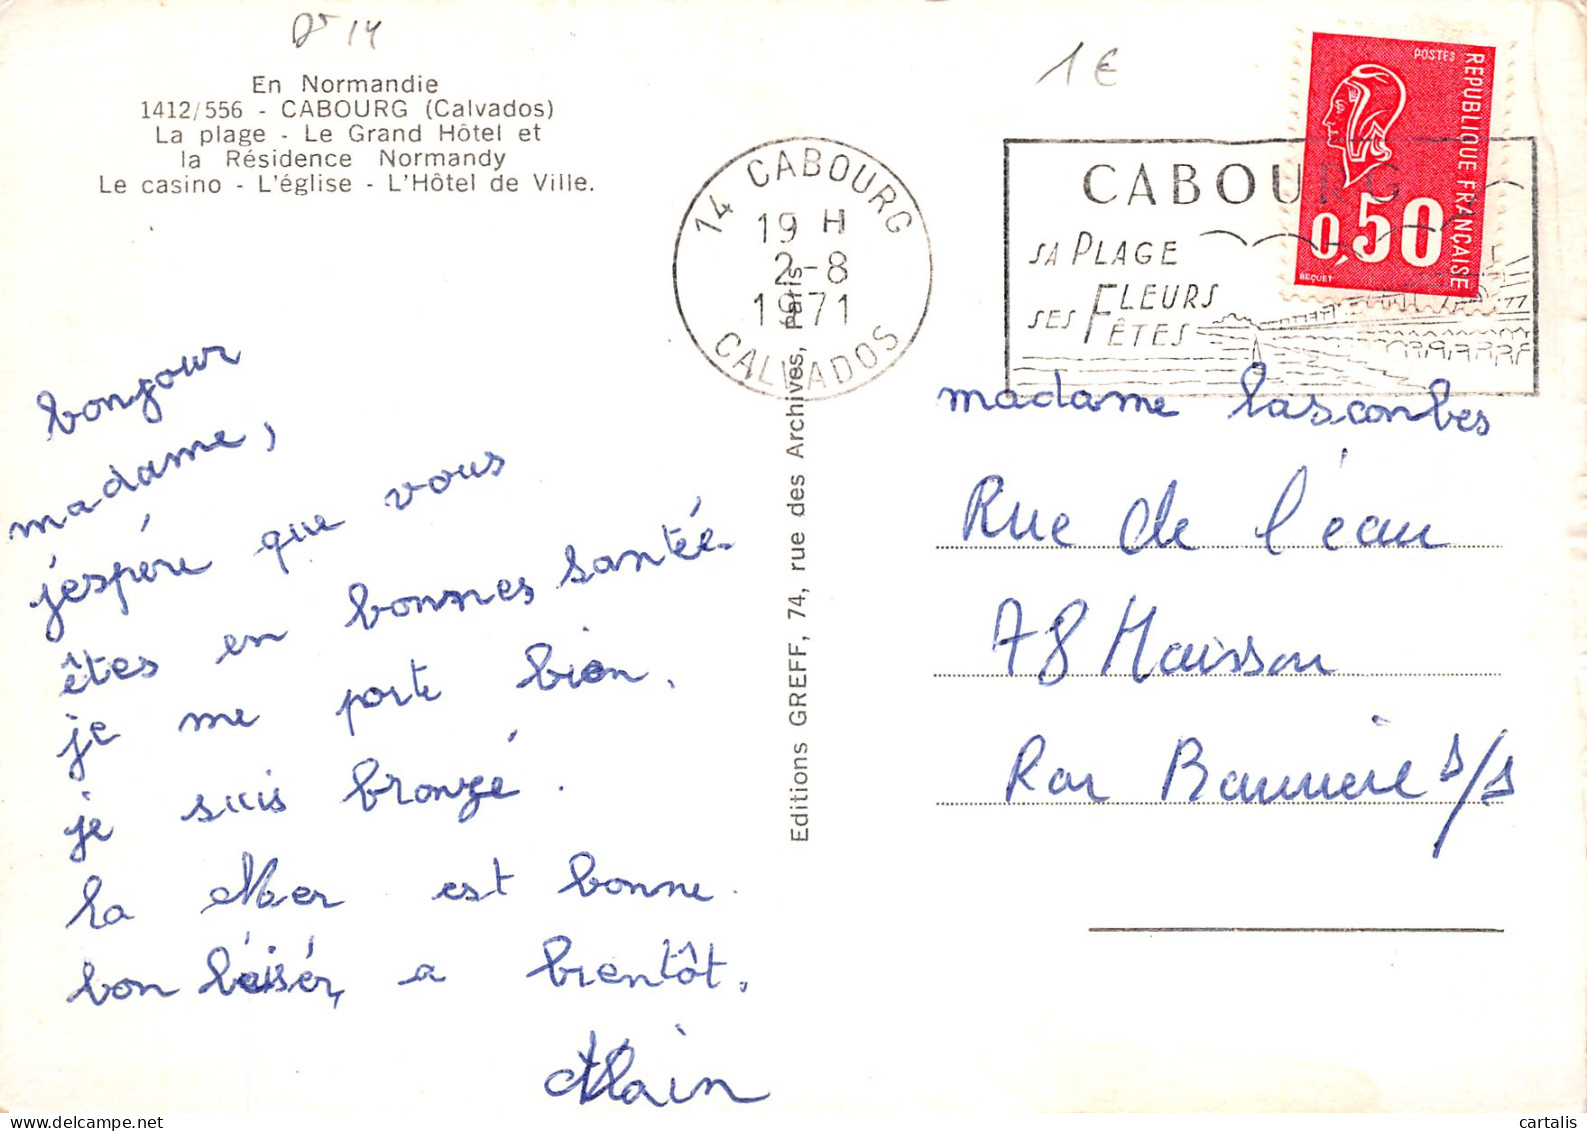 Dt 14
En Normandie
1412/556 - CABOURG (Calvados)
La plage - Le Grand Hôtel et
la Résidence Normandy
Le casino - L'église - L'Hôtel de Ville.
1 €
14 CABOURG
19 H
2-8
1971
CALVADOS
CABOURG
SA PLAGE
SES FLEURS
FÊTES
POSTES
REPUBLIQUE FRANÇAISE
0,50
BEQUET
bonjour
madame,
j'espére que vous
êtes en bonnes santée.
je me porte bien.
je suis bronzé.
la Mer est bonne.
bon béisér, a bientôt.
Alain
Editions GREFF, 74, rue des Archives, Paris
madame lasconbes
Rue de l'éau
78 Maisson
Par Banniere s/s
cartalis